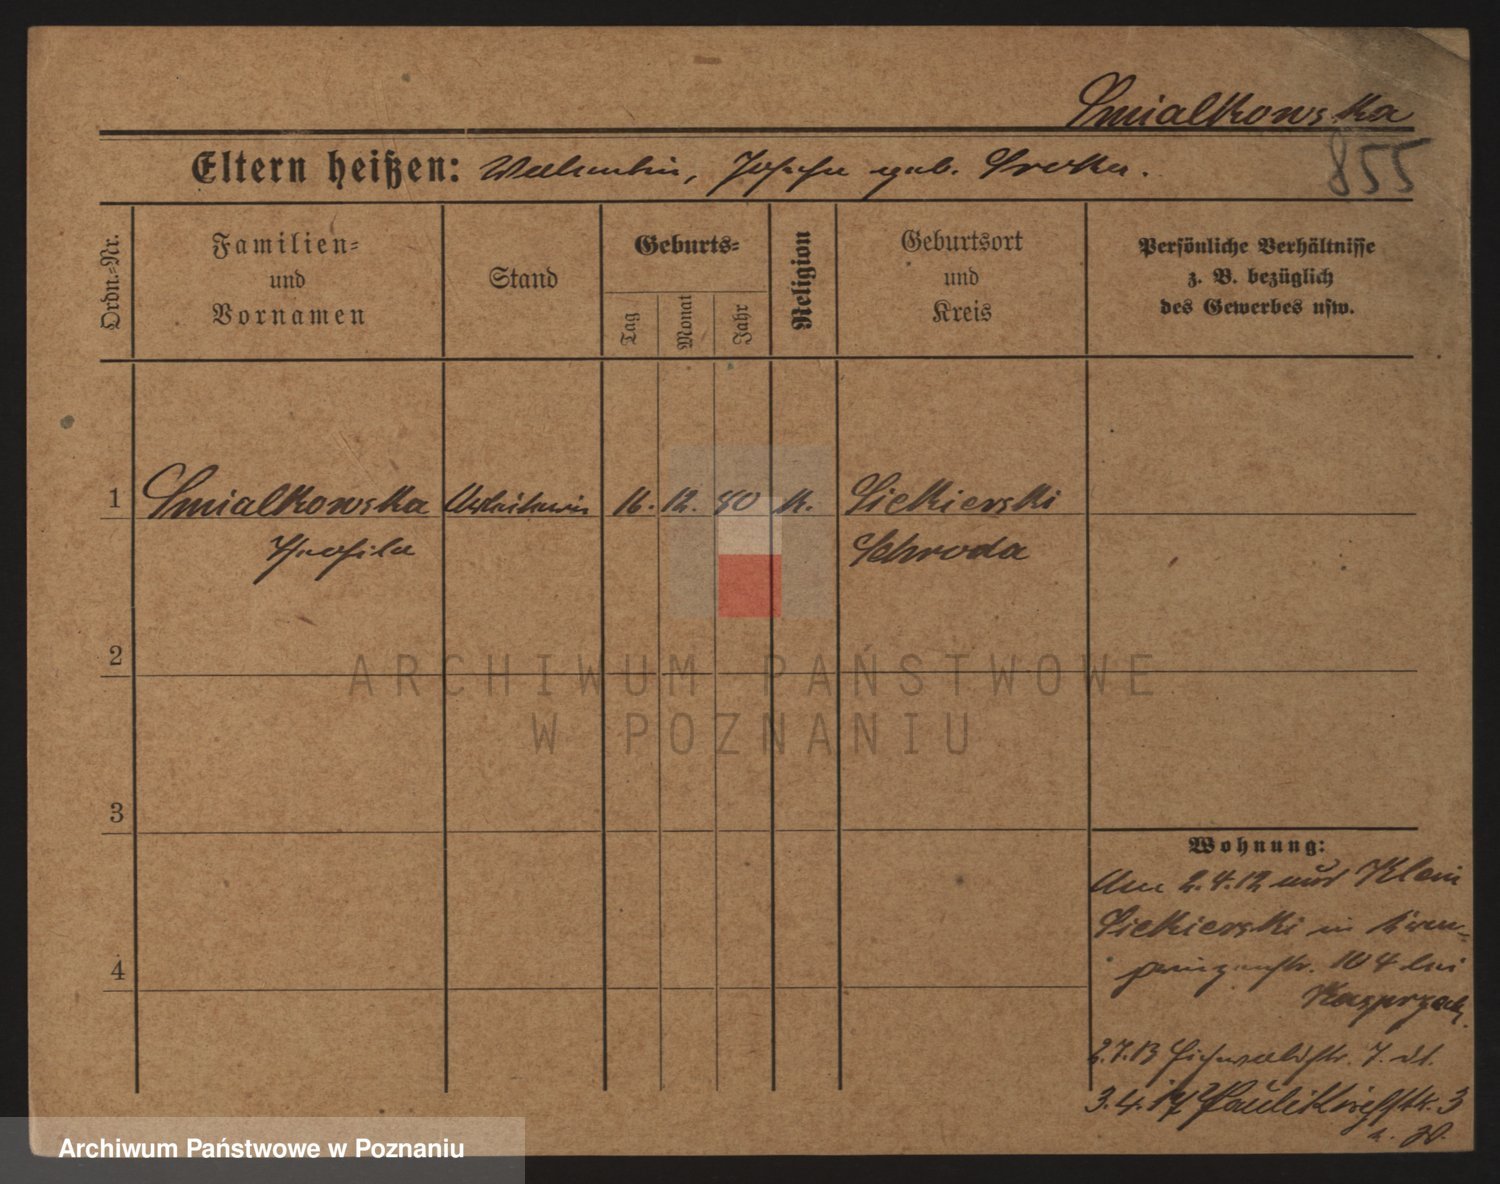 Smialkowska
855
Eltern heißen: Valentin, Josefa geb. Sroka.
Ordn.-Nr.
Familien-
und
Vornamen
Stand
Geburts-
Tag
Monat
Jahr
Religion
Geburtsort
und
Kreis
Persönliche Verhältnisse
z. B. bezüglich
des Gewerbes usw.
1 Smialkowska Arbeiterin 16. 12. 80 k. Siekierski
Schroda
2
3
4
Wohnung:
Am 2.4.12 aus Klein
Siekierski in
104 bei
Kasprzak.
2.7.13 Eichwaldstr. 7.
3.4.17 Paulikirchstr. 3
ARCHIWUM PAŃSTWOWE
W POZNANIU
Archiwum Państwowe w Poznaniu